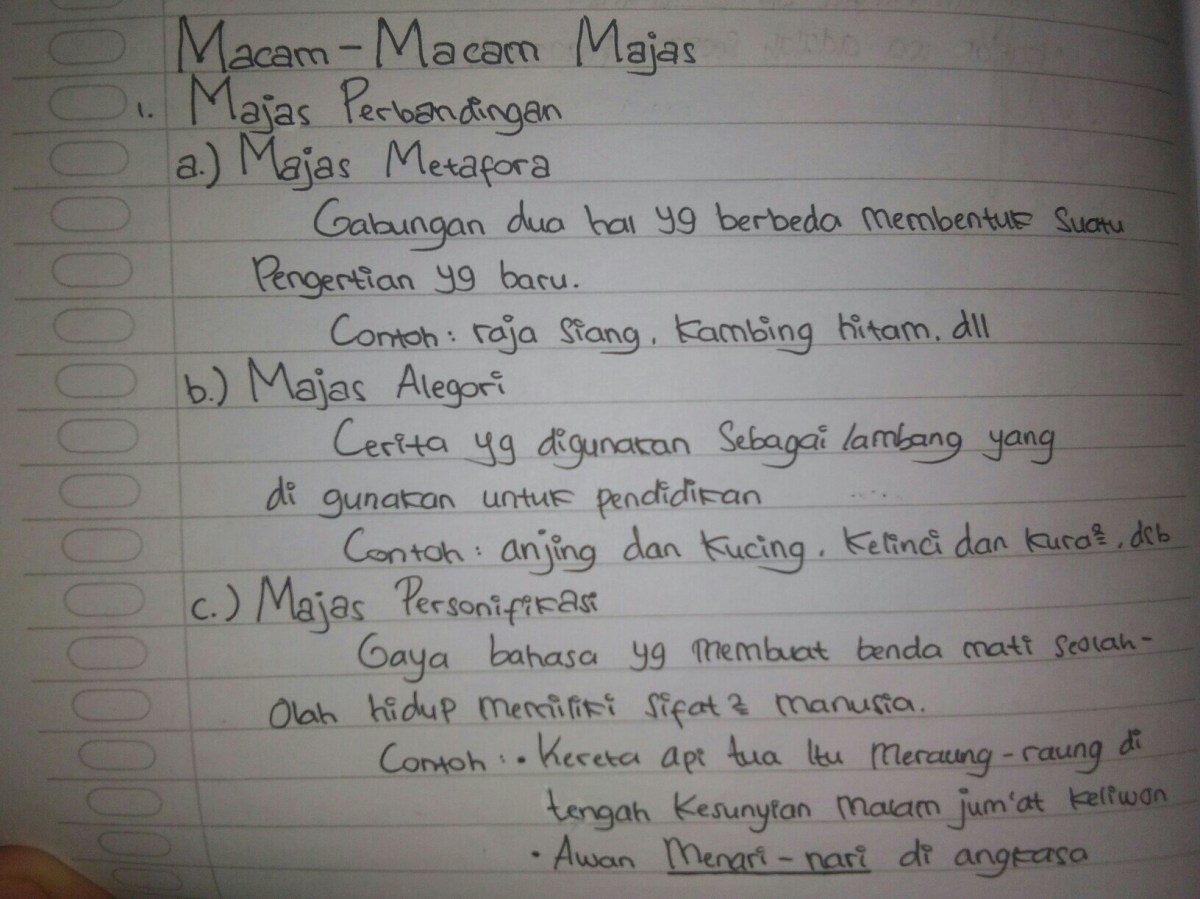 Macam-Macam Majas
1. Majas Perbandingan
a.) Majas Metafora
Gabungan dua hal yg berbeda membentuk suatu
Pengertian yg baru.
Contoh: raja siang, kambing hitam, dll
b.) Majas Alegori
Cerita yg digunakan sebagai lambang yang
di gunakan untuk pendidikan
Contoh: anjing dan kucing, kelinci dan kura², dsb
c.) Majas Personifikasi
Gaya bahasa yg membuat benda mati seolah-
olah hidup memiliki sifat² manusia.
Contoh: • Kereta api tua itu meraung-raung di
tengah kesunyian malam jum'at keliwon
• Awan menari-nari di angkasa